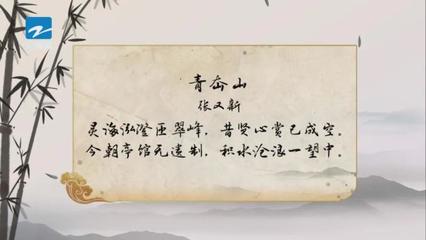 青岙山
张又新
灵海泓澄匝翠峰，昔贤心赏已成空。
今朝亭馆无遗制，积水沧浪一望中。